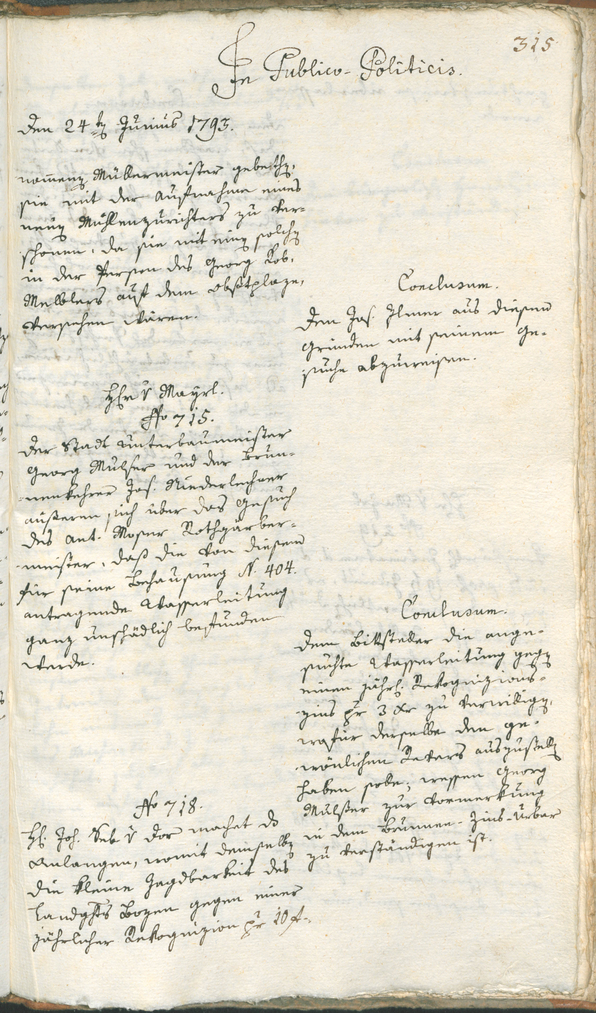 315
In Publico-Politicis.
Den 24ten Junius 1793.
nommeny Müllermeister gebethen,
sie mit der Aufnahme eines
neuen Mühlenzurichters zu ver-
schonen, da sie mit einem solchen
in der Person des Georg
auf dem Obstplaze,
versehen wären.
Conclusum.
Dem Jos. aus diesen
Gründen mit seinem Ge-
suche abzuweisen.
Hr v Mayrl.
No 715.
Der Stadt Unterbaumeister
Georg Mulser und der Brun-
nenkehrer Jos. Niederlechner
äußeren sich über das Gesuch
des Ant. Moser Rothgärber-
meister, daß die von diesem
für seine Behausung N. 404.
antragende Wasserleitung
ganz unschädlich befunden
werde.
Conclusum.
Dem Bittsteller die ange-
suchte Wasserleitung gegen
einen jährl. Rekognizions-
zins pr 3 xr zu verwilligen,
wofür derselbe den ge-
wönlichen Revers auszustellen
haben solle; wessen Georg
Mulser zur Vormerkung
in dem Brunnen-Zins-Urbar
zu verständigen ist.
No 718.
H. Joh. Seb. v Dor machet das
Anlangen, womit demselben
die kleine Jagdbarkeit des
Landghts Bozen gegen einer
jährlicher Rekognizion pr 10 f.